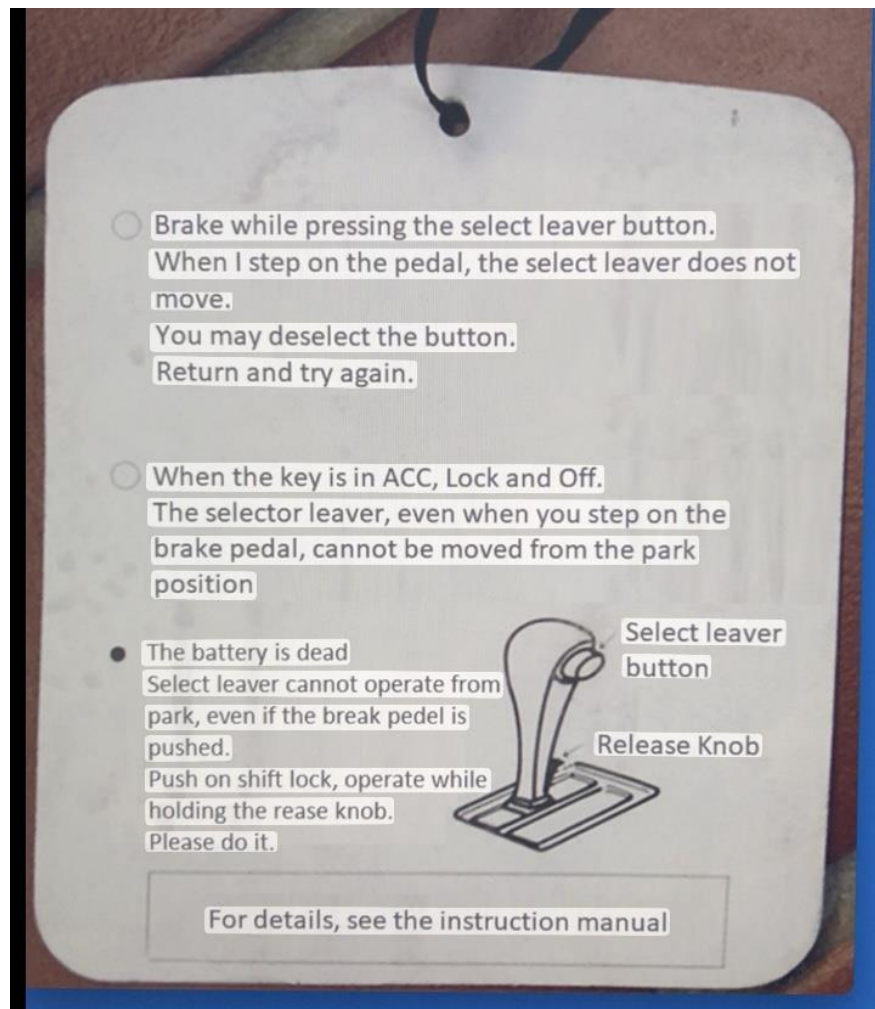 Brake while pressing the select leaver button.
When I step on the pedal, the select leaver does not
move.
You may deselect the button.
Return and try again.
When the key is in ACC, Lock and Off.
The selector leaver, even when you step on the
brake pedal, cannot be moved from the park
position
The battery is dead
Select leaver cannot operate from
park, even if the break pedel is
pushed.
Push on shift lock, operate while
holding the rease knob.
Please do it.
Select leaver
button
Release Knob
For details, see the instruction manual